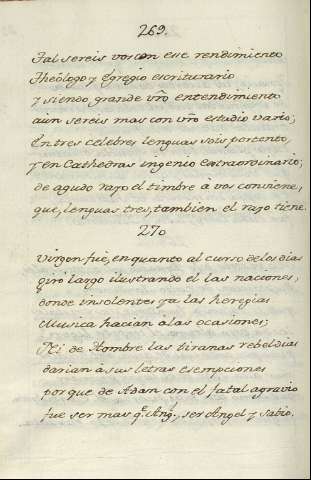 269.
Tal sereis vos con ese rendimiento
Theólogo y Egregio escriturario
y siendo grande vr̃o entendimiento
aun sereis mas con vr̃o estudio vario;
En tres celebres lenguas sois portento,
y en Cathedras ingenio extraordinario;
de agudo rayo el timbre à vos conviene,
que, lenguas tres, tambien el rayo tiene.
270
Virgen fue, en quanto al curso de los dias
giró largo ilustrando el las naciones,
donde insolentes ya las heregias
Musica hacian á las ocasiones;
Ni de Hombre las tiranas rebeldias
darian à sus letras esempciones
porque de Adan con el fatal agravio
fue ser mas q.e Ang.l, ser Angel y sabio.